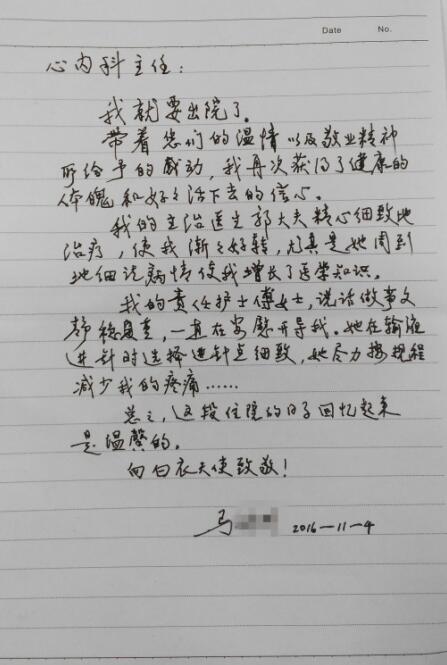 Date No.
心内科主任：
我就要出院了。
带着您们的温情以及敬业精神
所给予的感动，我再次获得了健康的
体魄和好好活下去的信心。
我的主治医生郭大夫精心细致地
治疗，使我渐渐好转，尤其是她周到
地细说病情使我增长了医学知识。
我的责任护士傅女士，说话做事文
静稳重，一直在安慰开导我。她在输液
进针时选择进针点细致，她尽力按规程
减少我的疼痛……
总之，这段住院的日子回忆起来
是温馨的。
向白衣天使致敬！
马 2016-11-4